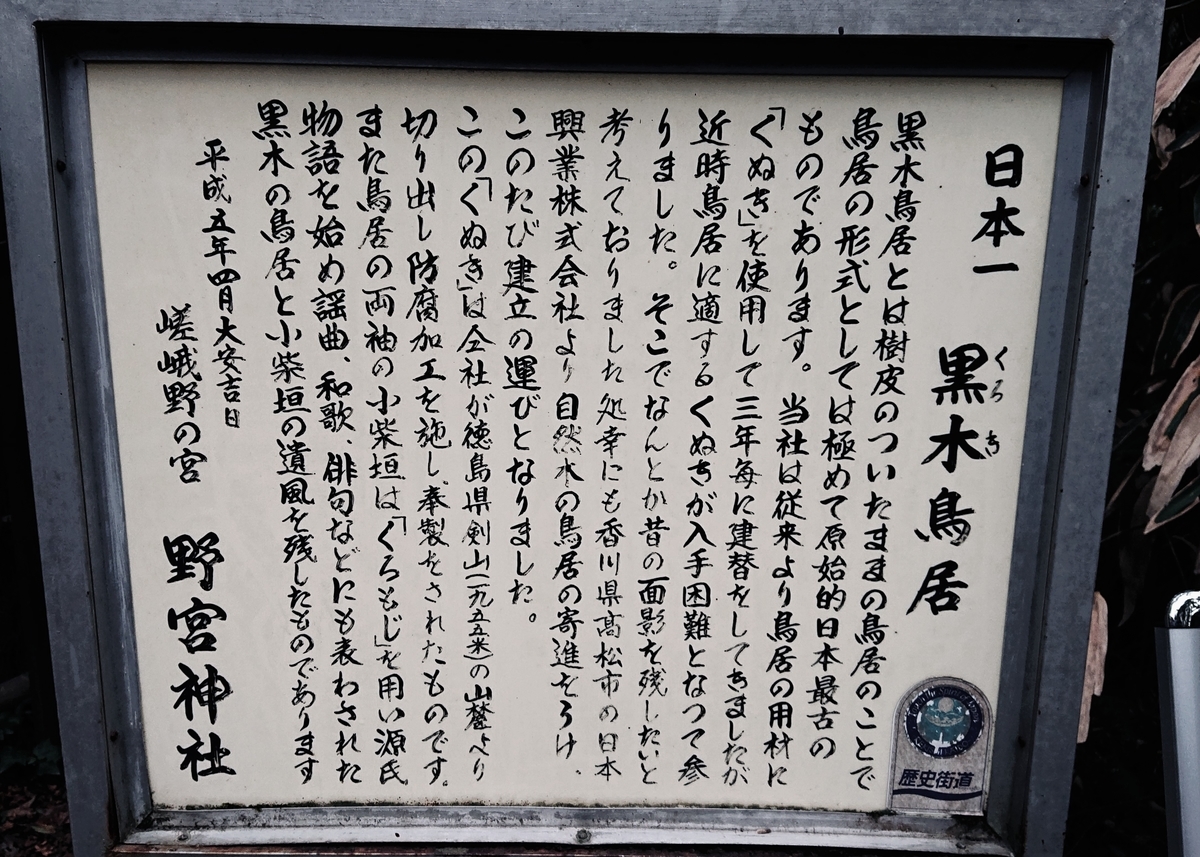 日本一　黒木鳥居
くろき
黒木鳥居とは樹皮のついたままの鳥居のことで
鳥居の形式としては極めて原始的日本最古の
ものであります。当社は従来より鳥居の用材に
「くぬぎ」を使用して三年毎に建替をしてきましたが
近時鳥居に適するくぬぎが入手困難となって参
りました。そこでなんとか昔の面影を残したいと
考えておりました処幸にも香川県高松市の日本
興業株式会社より自然木の鳥居の寄進をうけ、
このたび建立の運びとなりました。
この「くぬぎ」は仝社が徳島県剣山(一九五五米)の山麓より
切り出し防腐加工を施し奉製をされたものです。
また鳥居の両袖の小柴垣は「くろもじ」を用い源氏
物語を始め謡曲、和歌、俳句などにも表わされた
黒木の鳥居と小柴垣の遺風を残したものであります
平成五年四月大安吉日
嵯峨野の宮　野宮神社
歴史街道